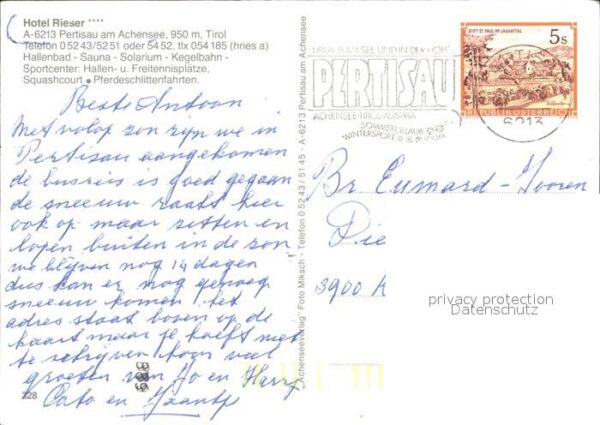 Hotel Rieser ****
A-6213 Pertisau am Achensee, 950 m, Tirol
Telefon 0 52 43/52 51 oder 54 52. tlx 054 185 (hries a)
Hallenbad - Sauna - Solarium - Kegelbahn -
Sportcenter: Hallen- u. Freitennisplätze,
Squashcourt. • Pferdeschlittenfahrten.
Beste Antoon
Met volop zon zijn we in
Pertisau aangekomen
de busreis is goed gegaan
de sneeuw raakt hier
ook op maar zitten en
lopen buiten in de zon
we blijven nog 14 dagen
dus kan er nog genoeg
sneeuw komen het
adres staat boven op de
kaart maar je hoeft niet
te schrijven hoor veel
groeten van Jo en Harry
Cato en Jaantje
228
"Achenseeverlag" Foto Miksch - Telefon 0 52 43 / 51 45 - A-6213 Pertisau am Achensee
URLAUB AM SEE UND IN DER HÖH'
PERTISAU
ACHENSEE-TIROL-AUSTRIA
SOMMERURLAUB
WINTERSPORT
6213
STIFT ST. PAUL IM LAVANTTAL
5s
REPUBLIK ÖSTERREICH
Br. Eumard-Jooren
Die
3900 A
privacy protection
Datenschutz